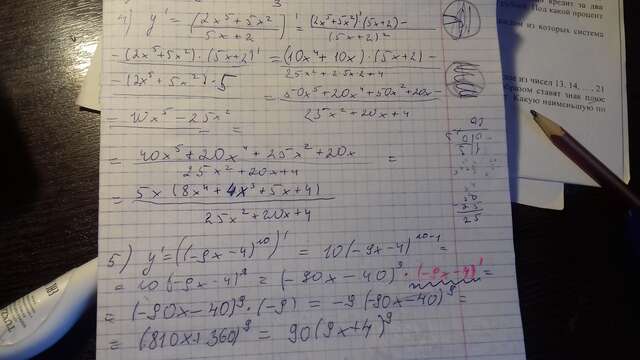 4) y' = [(2x⁵+5x²)/(5x+2)]' = ((2x⁵+5x²)'(5x+2) -
- (2x⁵+5x²)·(5x+2)')/(5x+2)² = ((10x⁴+10x)·(5x+2) -
- (2x⁵+5x²)·5)/(25x²+2·5x·2+4) = (50x⁵+20x⁴+50x²+20x -
- 10x⁵ - 25x²)/(25x²+20x+4) =
= (40x⁵+20x⁴+25x²+20x)/(25x²+20x+4) =
= 5x(8x⁴+4x³+5x+4)/(25x²+20x+4)
5) y' = ((-9x-4)¹⁰)' = 10(-9x-4)¹⁰⁻¹ =
= 10(-9x-4)⁹ = (-90x-40)⁹·(-9x-4)' =
= (-90x-40)⁹·(-9) = -9(-90x-40)⁹ =
= (810x+360)⁹ = 90(9x+4)⁹
кредит за два
Под какой процент
из которых система
из чисел 13, 14, ..., 21
образом ставят знак плюс
Какую наименьшую по